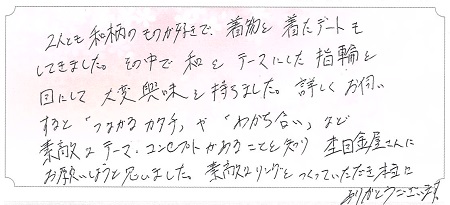 2人とも和柄のものが好きで、着物を着たデートも
してきました。その中で和をテーマにした指輪を
目にして大変興味を持ちました。詳しくお伺い
すると「つながるカタチ」や「わかち合い」など
素敵なテーマ・コンセプトがあることを知り 杢目金屋さんに
お願いしようと思いました。素敵なリングをつくっていただき本当に
ありがとうございます。